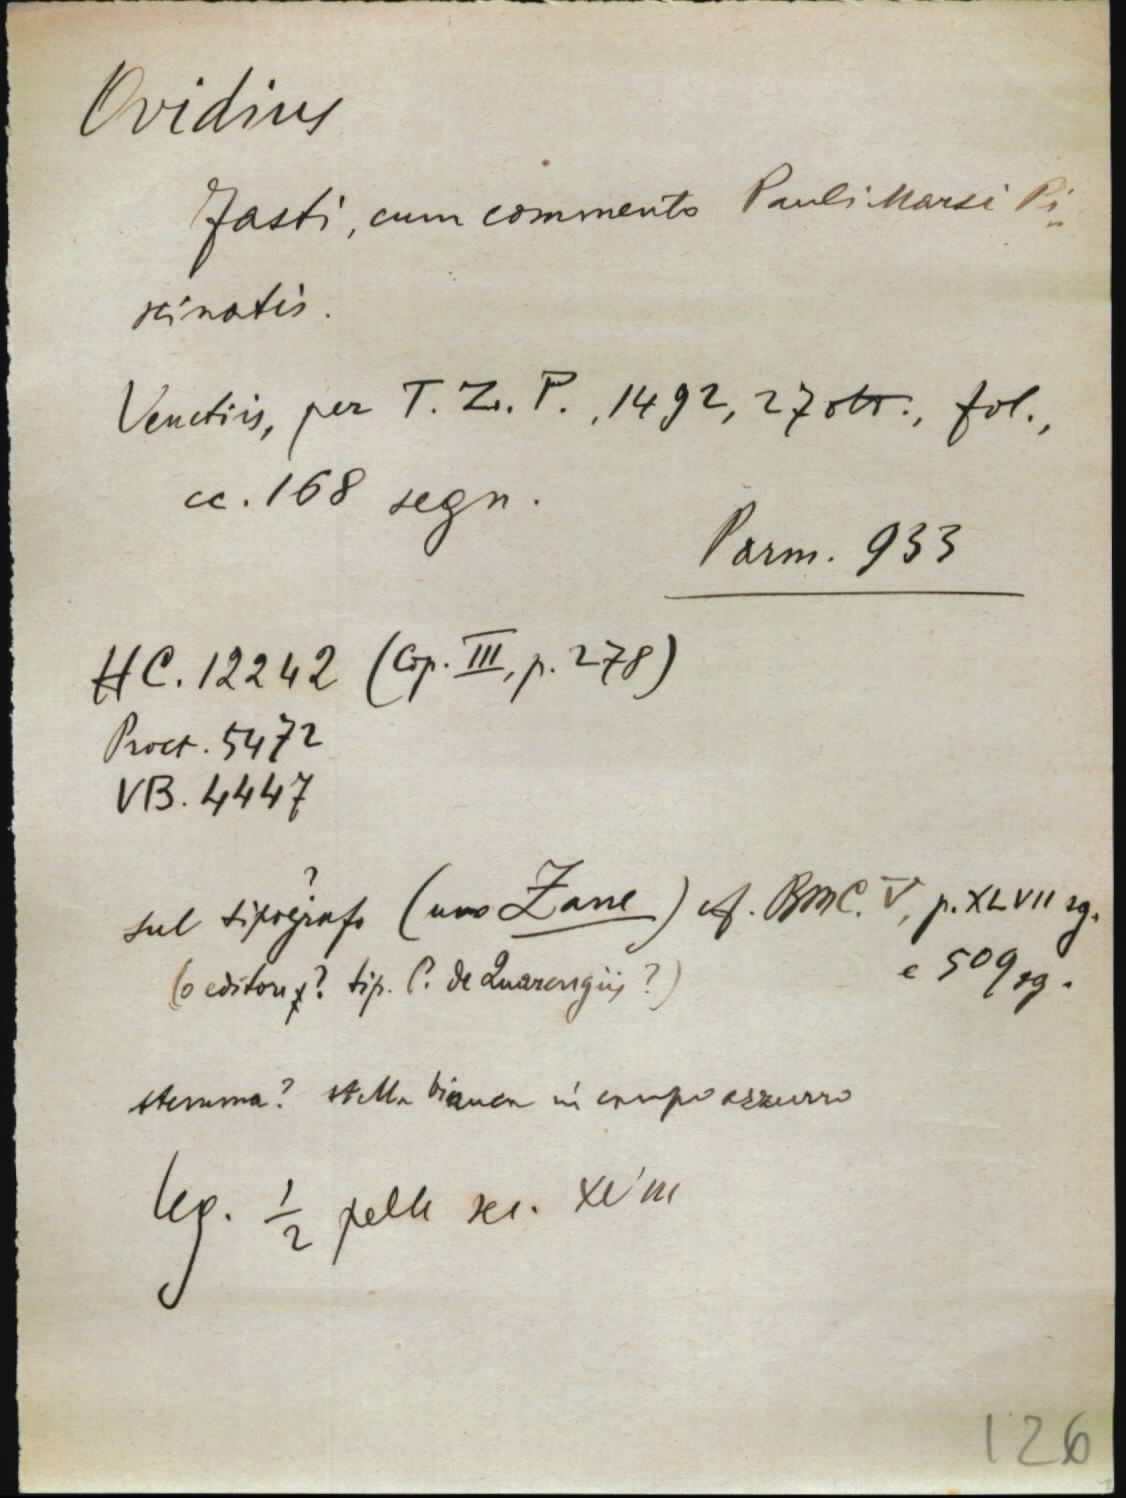 Ovidius
Fasti, cum commento Pauli Marsi Pi-
scinatis.
Venetiis, per T. Z. P., 1492, 27 ott., fol.,
cc. 168 segn.
Parm. 933
HC. 12242 (Cop. III, p. 278)
Proct. 5472
VB. 4447
sul tipografo ? (uno Zane) cf. BMC. V, p. XLVII sg.
(o editore? tip. C. de Quarengiis?) e 509 sg.
stemma? stella bianca in campo azzurro
leg. 1/2 pelle sec. XVIII
126